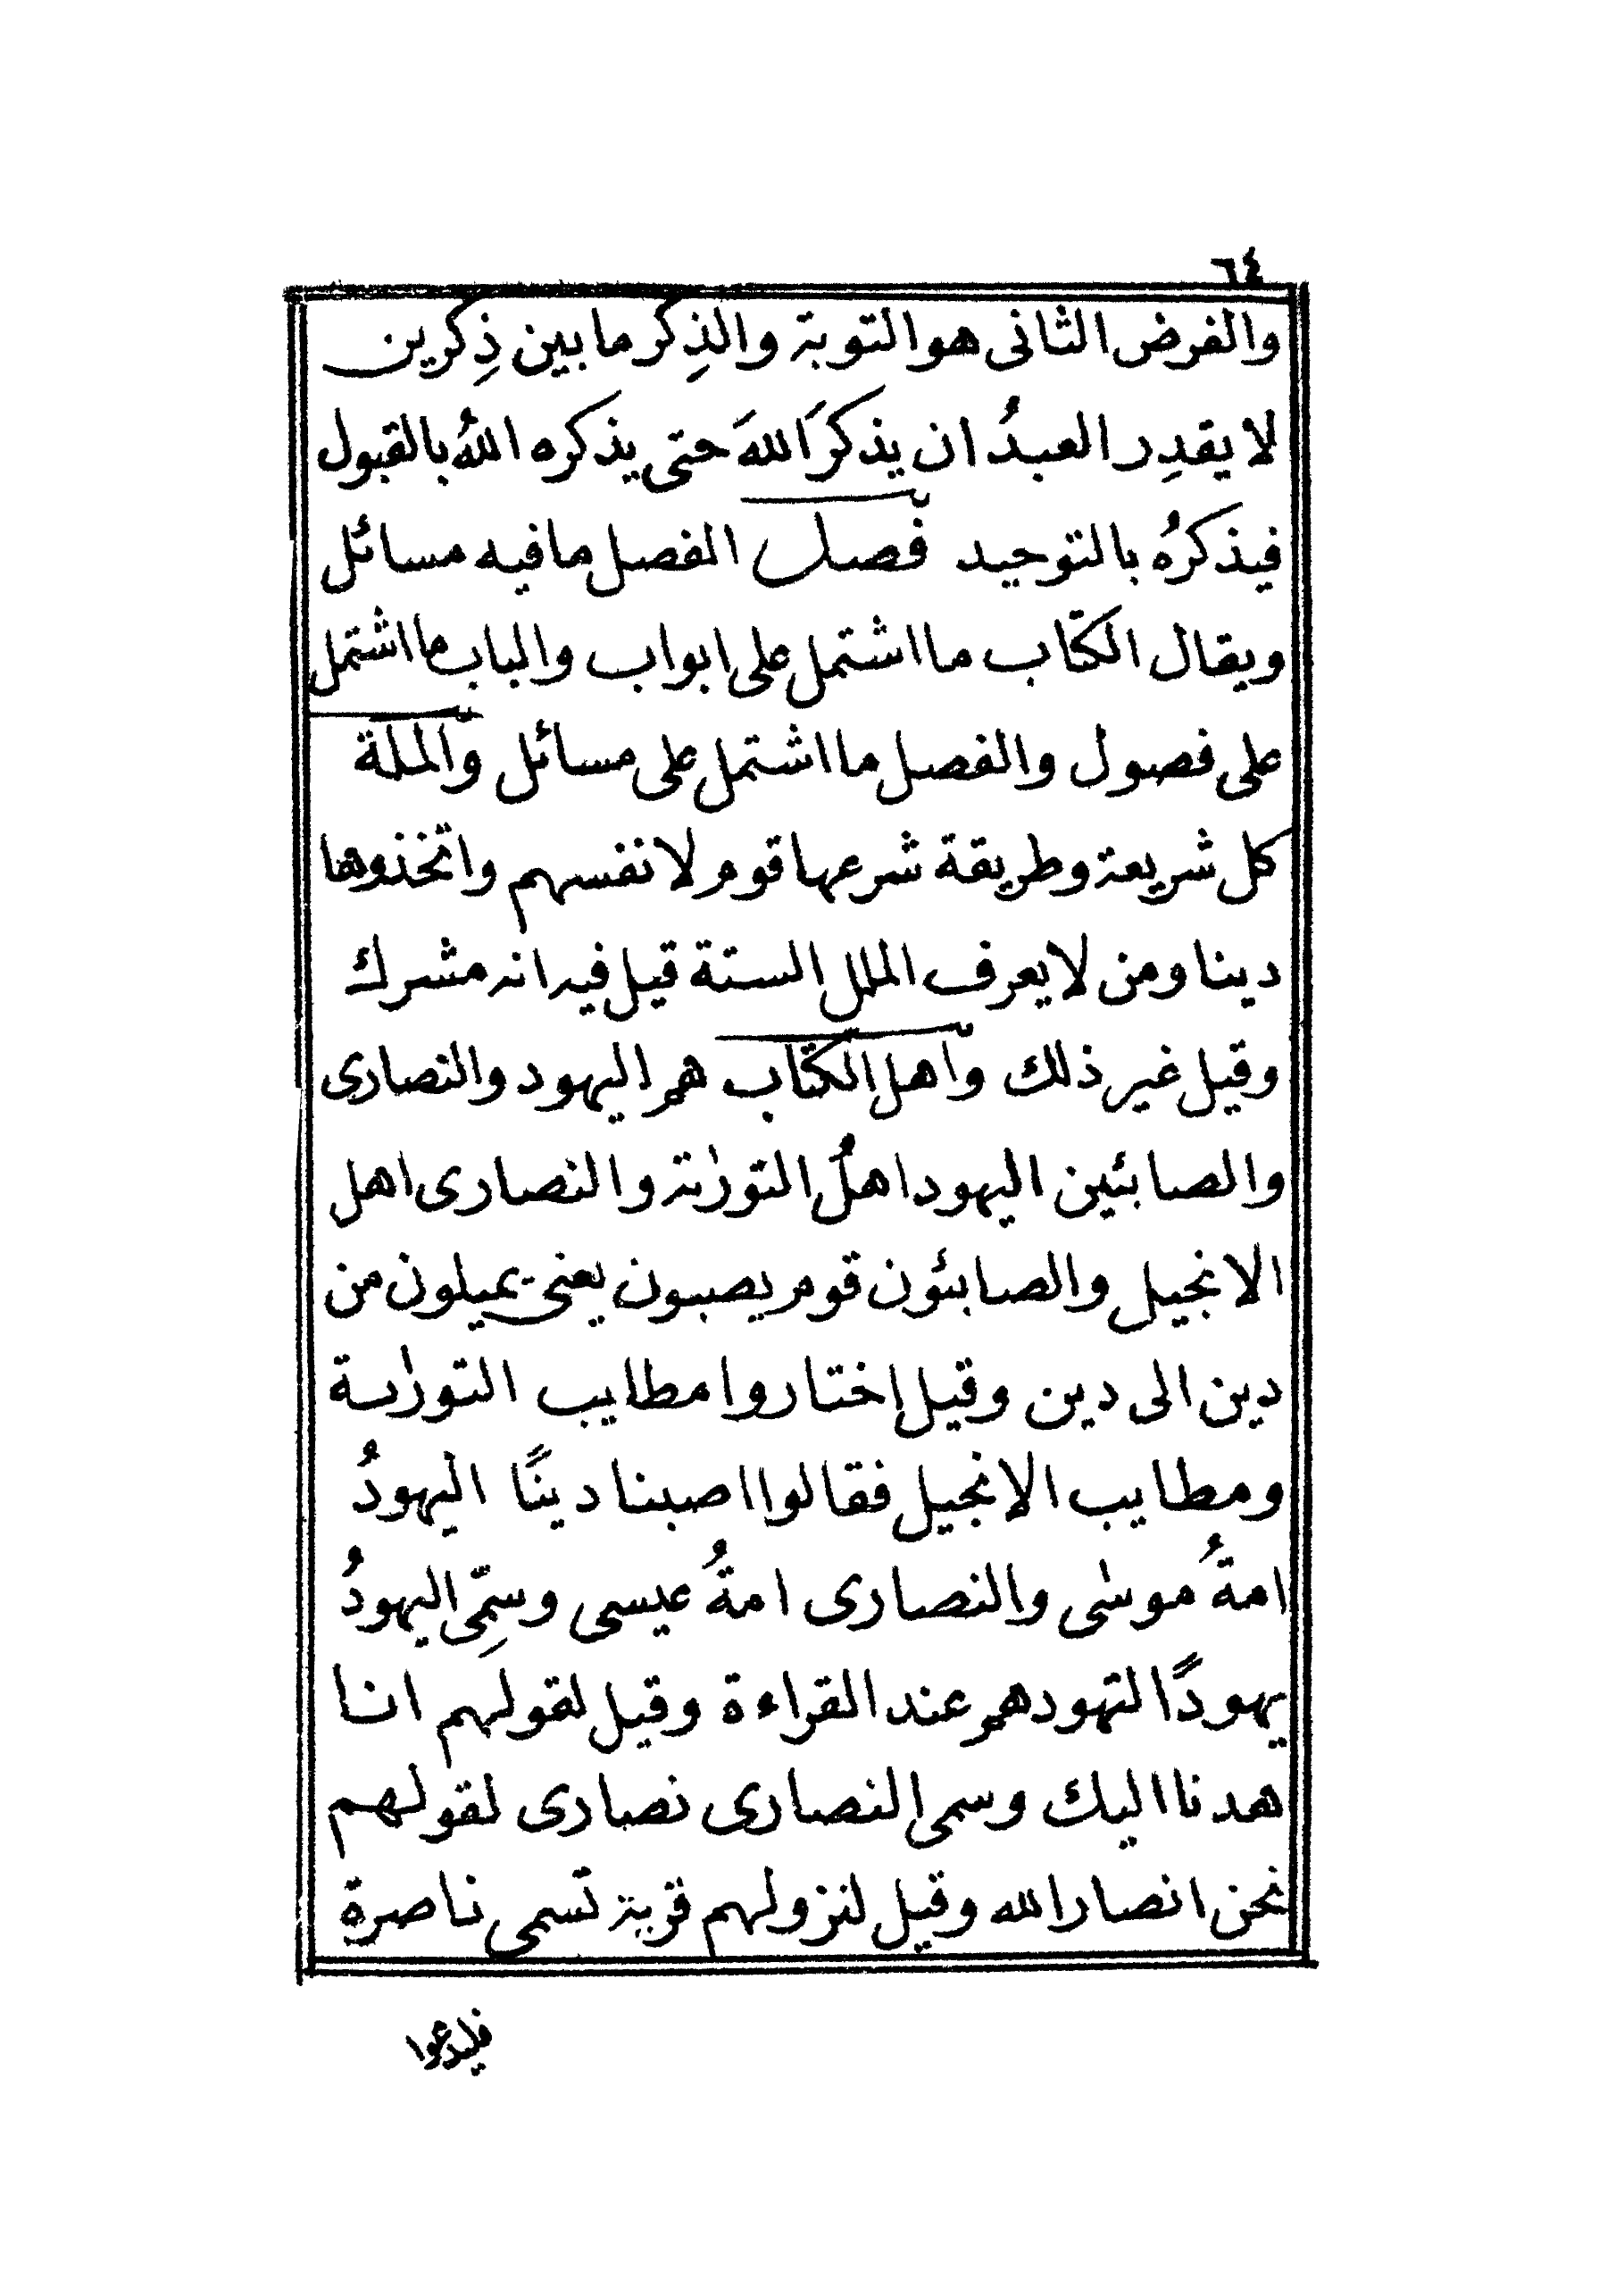 ٦٤
والفرض الثانى هو التوبة والذِكر ما بين ذِكرين
لا يقدِر العبدُ ان يذكرَ اللهَ حتى يذكره اللهُ بالقبول
فيذكرُه بالتوحيد فصل الفصل ما فيه مسائل
ويقال الكتاب ما اشتمل على ابواب والباب ما اشتمل
على فصول والفصل ما اشتمل على مسائل والملة
كل شريعة وطريقة شرعها قوم لانفسهم واتخذوها
دينا ومن لا يعرف الملل الستة قيل فيه انه مشرك
وقيل غير ذلك واهل الكتاب هم اليهود والنصارى
والصابئين اليهود اهلُ التورٰىة والنصارى اهل
الانجيل والصابئون قوم يصبون يعنى يميلون من
دين الى دين وقيل إختاروا مطايب التورٰىة
ومطايب الانجيل فقالوا اصبنا دينًا اليهودُ
امةُ موسٰى والنصارى امةُ عيسى وسمِّى اليهودُ
يهودًا لتهودهم عند القراءة وقيل لقولهم انا
هدنا اليك وسمى النصارى نصارى لقولهم
نحن انصار الله وقيل لنزولهم قرية تسمى ناصرة
فليدعوا